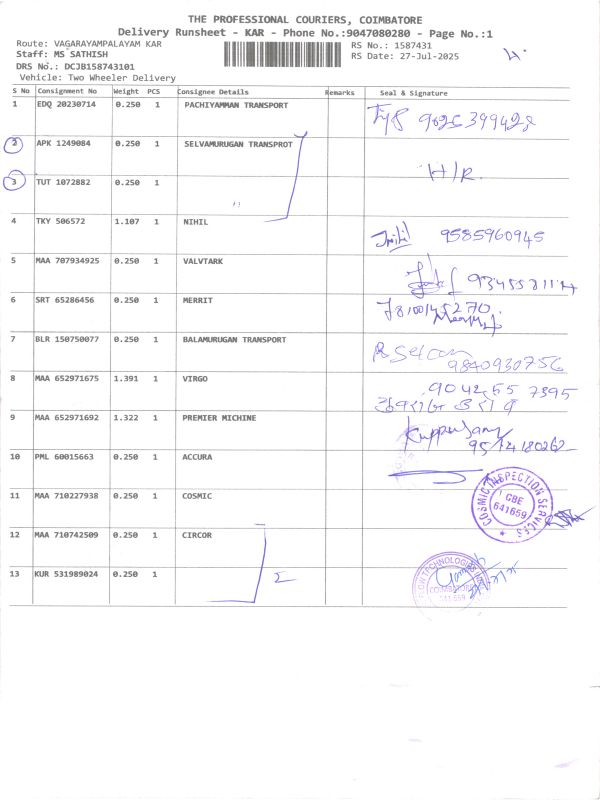 THE PROFESSIONAL COURIERS, COIMBATORE
Delivery Runsheet - KAR - Phone No.:9047080280 - Page No.:1
Route: VAGARAYAMPALAYAM KAR
Staff: MS SATHISH
DRS No.: DCJB158743101
Vehicle: Two Wheeler Delivery
RS No.: 1587431
RS Date: 27-Jul-2025
S No Consignment No Weight PCS Consignee Details Remarks Seal & Signature
1 EDQ 20230714 0.250 1 PACHIYAMMAN TRANSPORT
2 APK 1249084 0.250 1 SELVAMURUGAN TRANSPROT
H/R.
3 TUT 1072882 0.250 1 "
4 TKY 506572 1.107 1 NIHIL 9585960945
5 MAA 707934925 0.250 1 VALVTARK
6 SRT 65286456 0.250 1 MERRIT
7 BLR 150750077 0.250 1 BALAMURUGAN TRANSPORT
9840930756
8 MAA 652971675 1.391 1 VIRGO 9042 55 7395
9 MAA 652971692 1.322 1 PREMIER MICHINE Kuppusamy
10 PML 60015663 0.250 1 ACCURA
11 MAA 710227938 0.250 1 COSMIC COSMIC INSPECTION SERVICES CBE 641659
12 MAA 710742509 0.250 1 CIRCOR
13 KUR 531989024 0.250 1 FLOW TECHNOLOGIES COIMBATORE 641 659